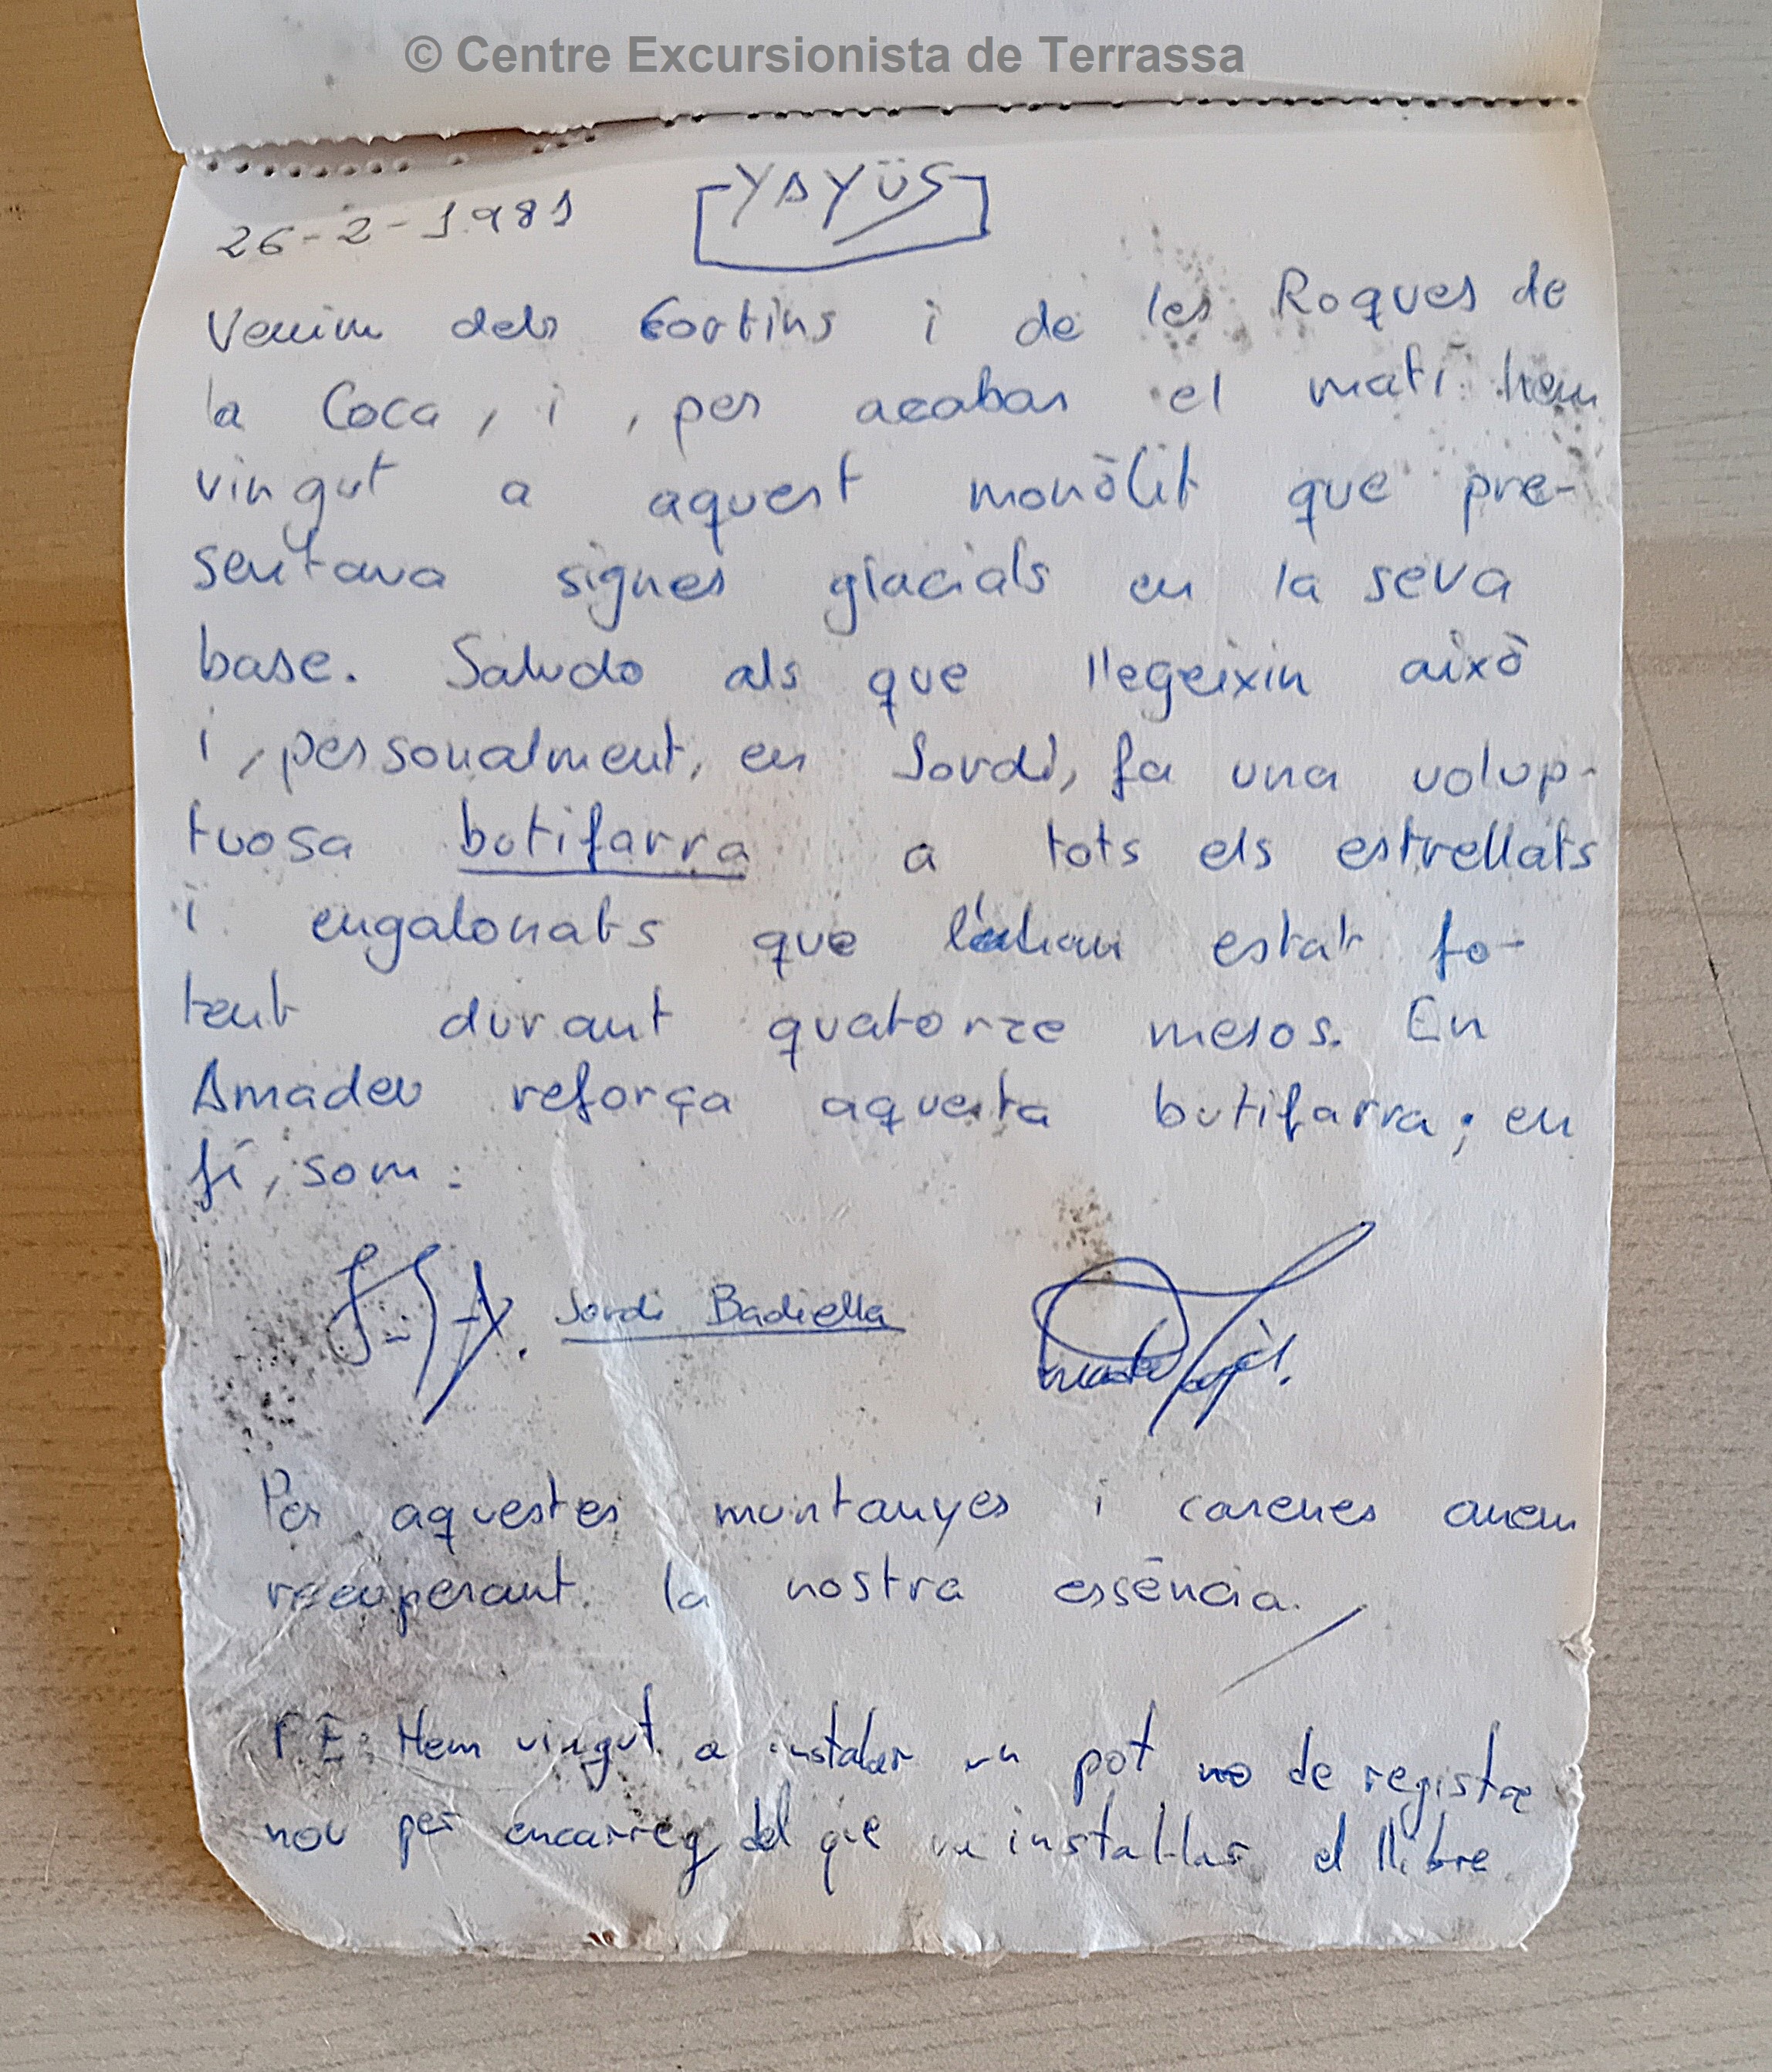 © Centre Excursionista de Terrassa
26-2-1981 YAYÜS
Venim dels Cortins i de les Roques de
la Coca, i, per acabar el matí hem
vingut a aquest monòlit que pre-
sentava signes glacials en la seva
base. Saludo als que llegeixin això
i, personalment, en Jordi, fa una volup-
tuosa botifarra a tots els estrellats
i engalonats que l'han estat fo-
tent durant quatorze mesos. En
Amadeu reforça aquesta butifarra; en
fí, som:
Jordi Badiella
Per aquestes muntanyes i carenes anem
recuperant la nostra essència.
P.E: Hem vingut a instalar un pot no de registre
nou per encarreg del que va instal·lar el llibre